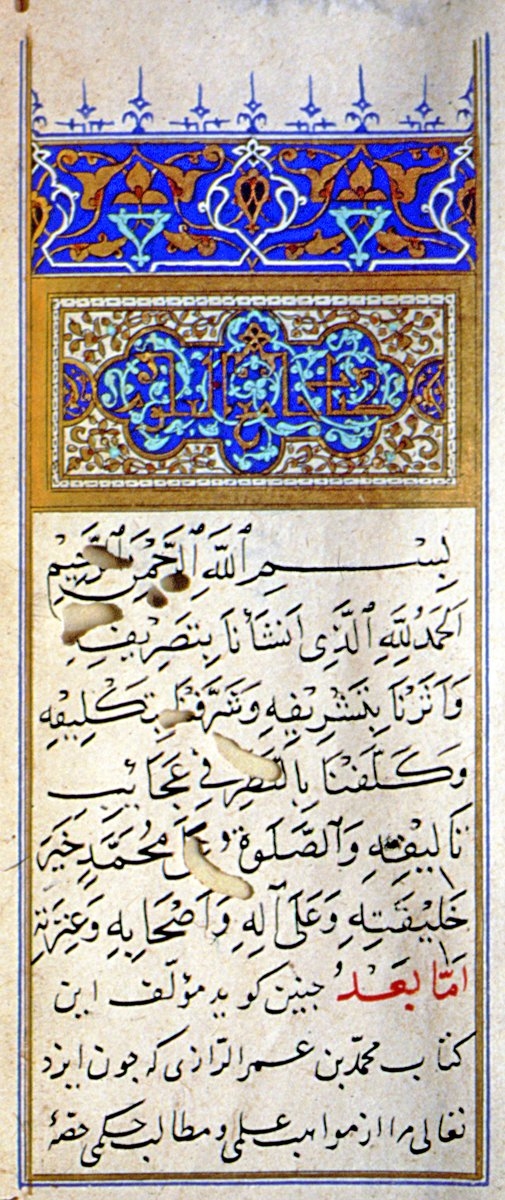 كتاب جامع العلوم
بِسْمِ اللَّهِ الرَّحْمَنِ الرَّحِيمِ
اَلحَمدُ لِلّهِ الَّذِى اَنشَأنَا بِتَصرِيفِهِ
وَآثَرَنَا بِتَشرِيفِهِ وَشَرَّفَنَا بِتَكلِيفِهِ
وَكَلَّفَنَا بِالنَّظَرِ فِى عَجَايِب
تَاليفِهِ وَالصَّلَوةُ عَلَى مُحَمَّدٍ خَيرِ
خَليفَتِهِ وَعَلَى آلِهِ وَاَصحَابِهِ وَعِترَتِهِ
امّا بَعدُ چنین کوید مؤلّف این
کتاب محمّد بن عمر الرّازی که چون ایزد
تعالی مرا از مواهب علمی و مطالب حکمی حصّهٔ